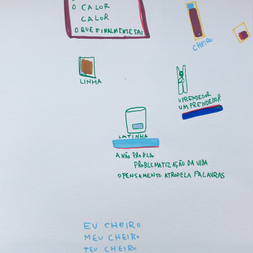 O CALOR
CALOR
O QUE FINALMENTE SAI
CHEIRO
LINHA
UM PRENDEDOR
LATINHA
A NÃO
PROBLEMATIZAÇÃO DA VIDA
O PENSAMENTO ATROPELA PALAVRAS
EU CHEIRO
MEU CHEIRO
TEU CHEIRO